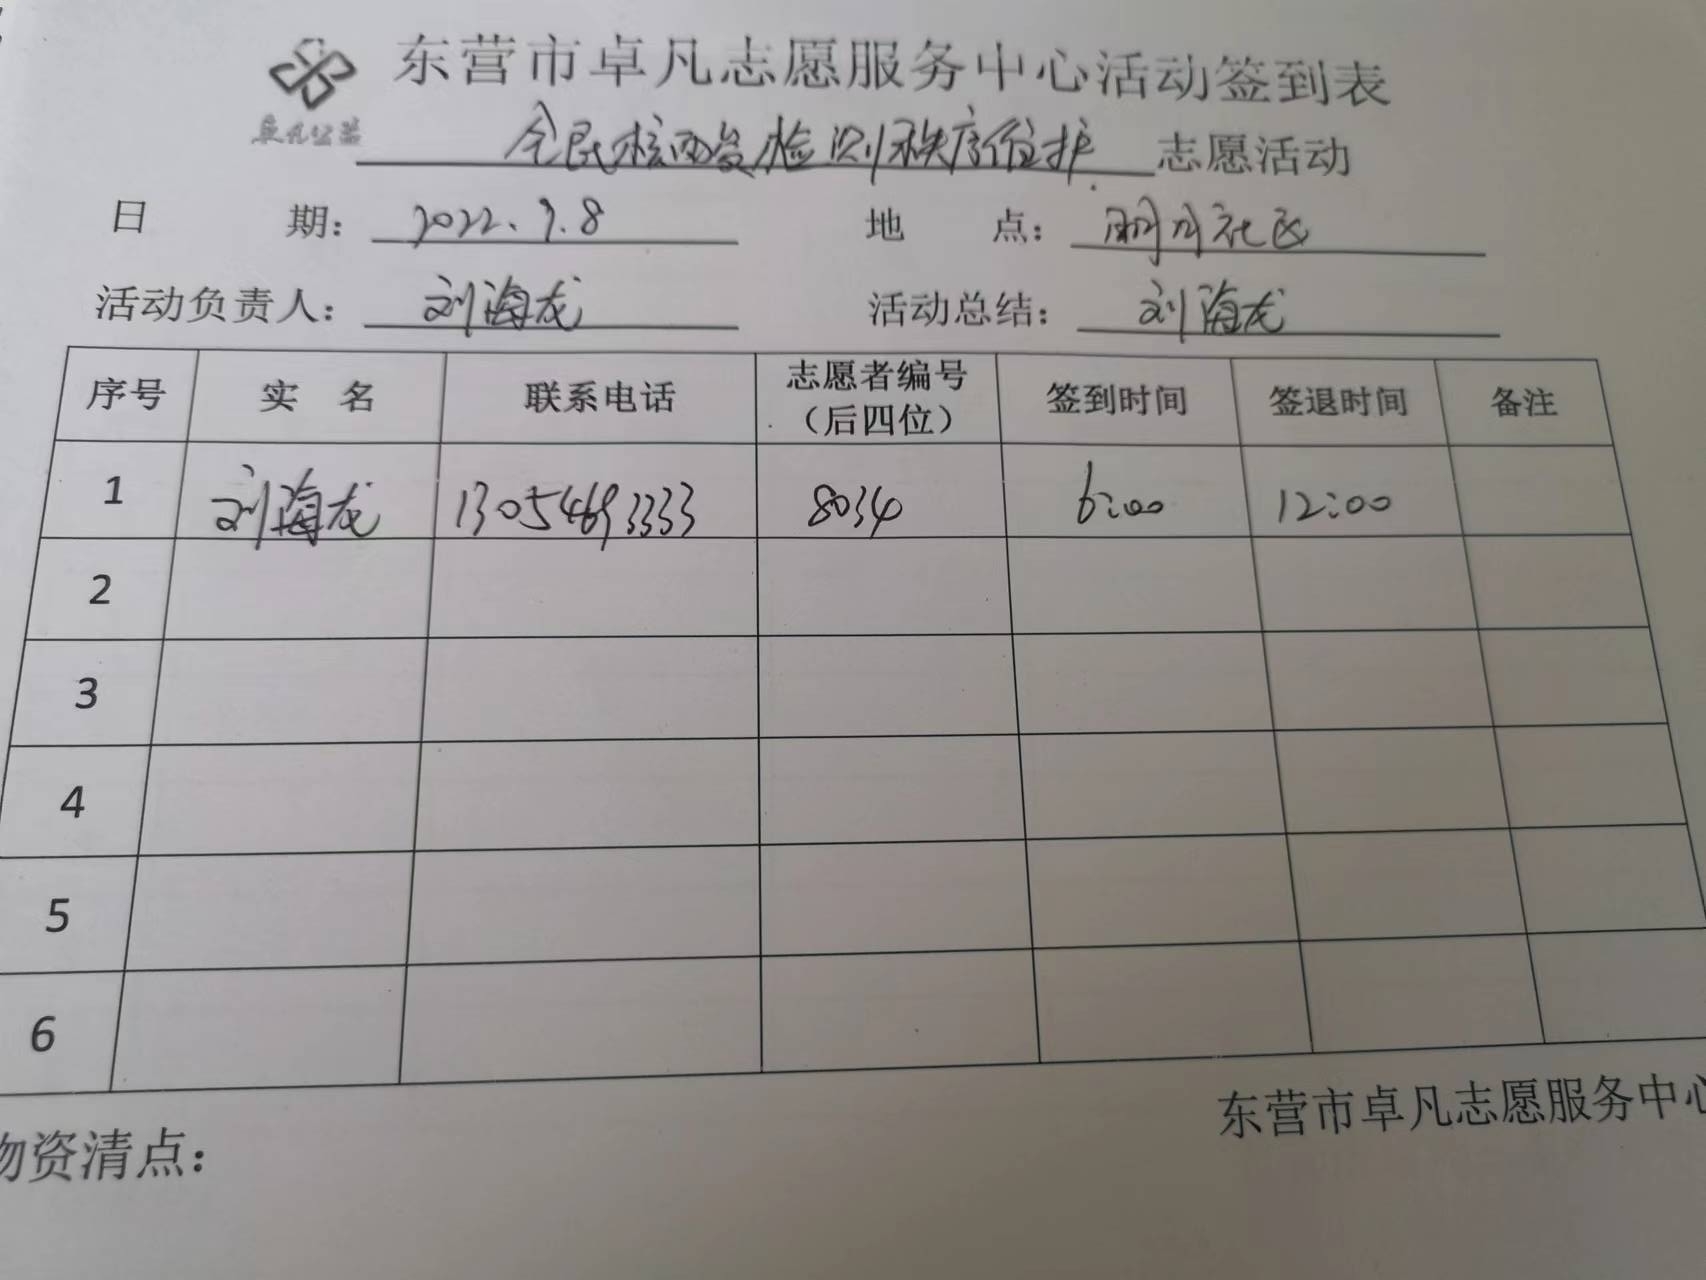 东营市卓凡志愿服务中心活动签到表
卓凡公益
全民核酸检测秩序维护 志愿活动
日 期: 2022.9.8 地 点: 明月社区
活动负责人: 刘海龙 活动总结: 刘海龙
序号 实 名 联系电话 志愿者编号（后四位） 签到时间 签退时间 备注
1 刘海龙 13054693333 8034 6:00 12:00
2
3
4
5
6
东营市卓凡志愿服务中心
物资清点: